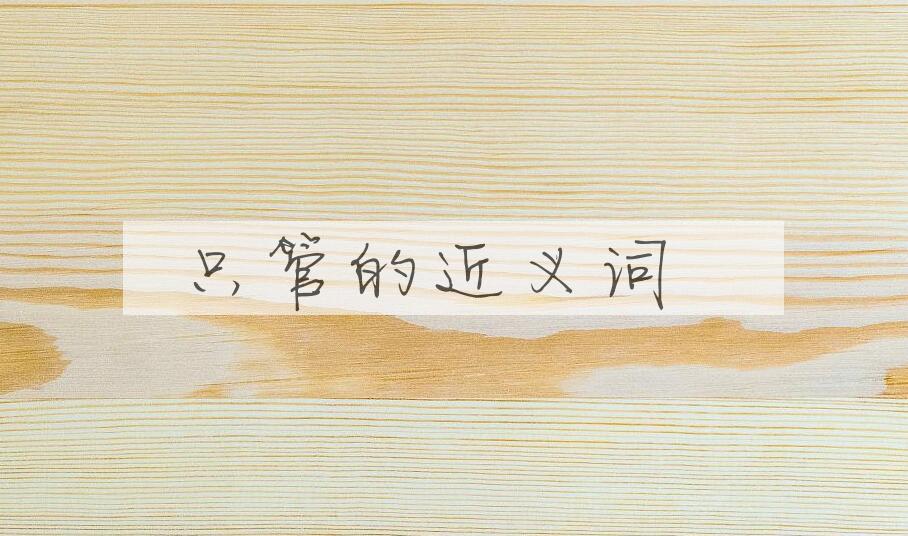 只管的近义词